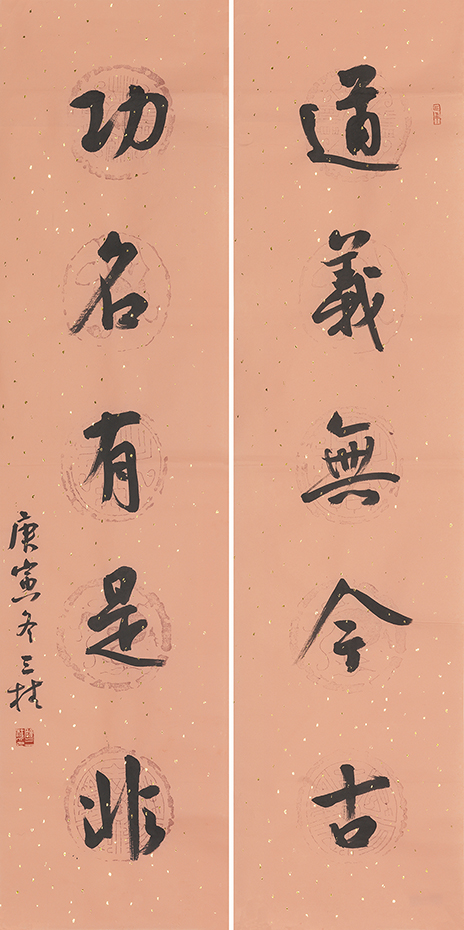 道義無今古
功名有是非
庚寅冬三桂